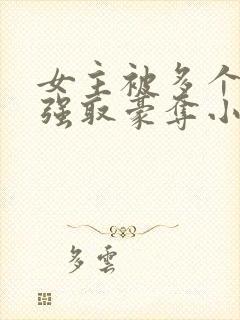 女主被多个
强取豪夺小
多雲